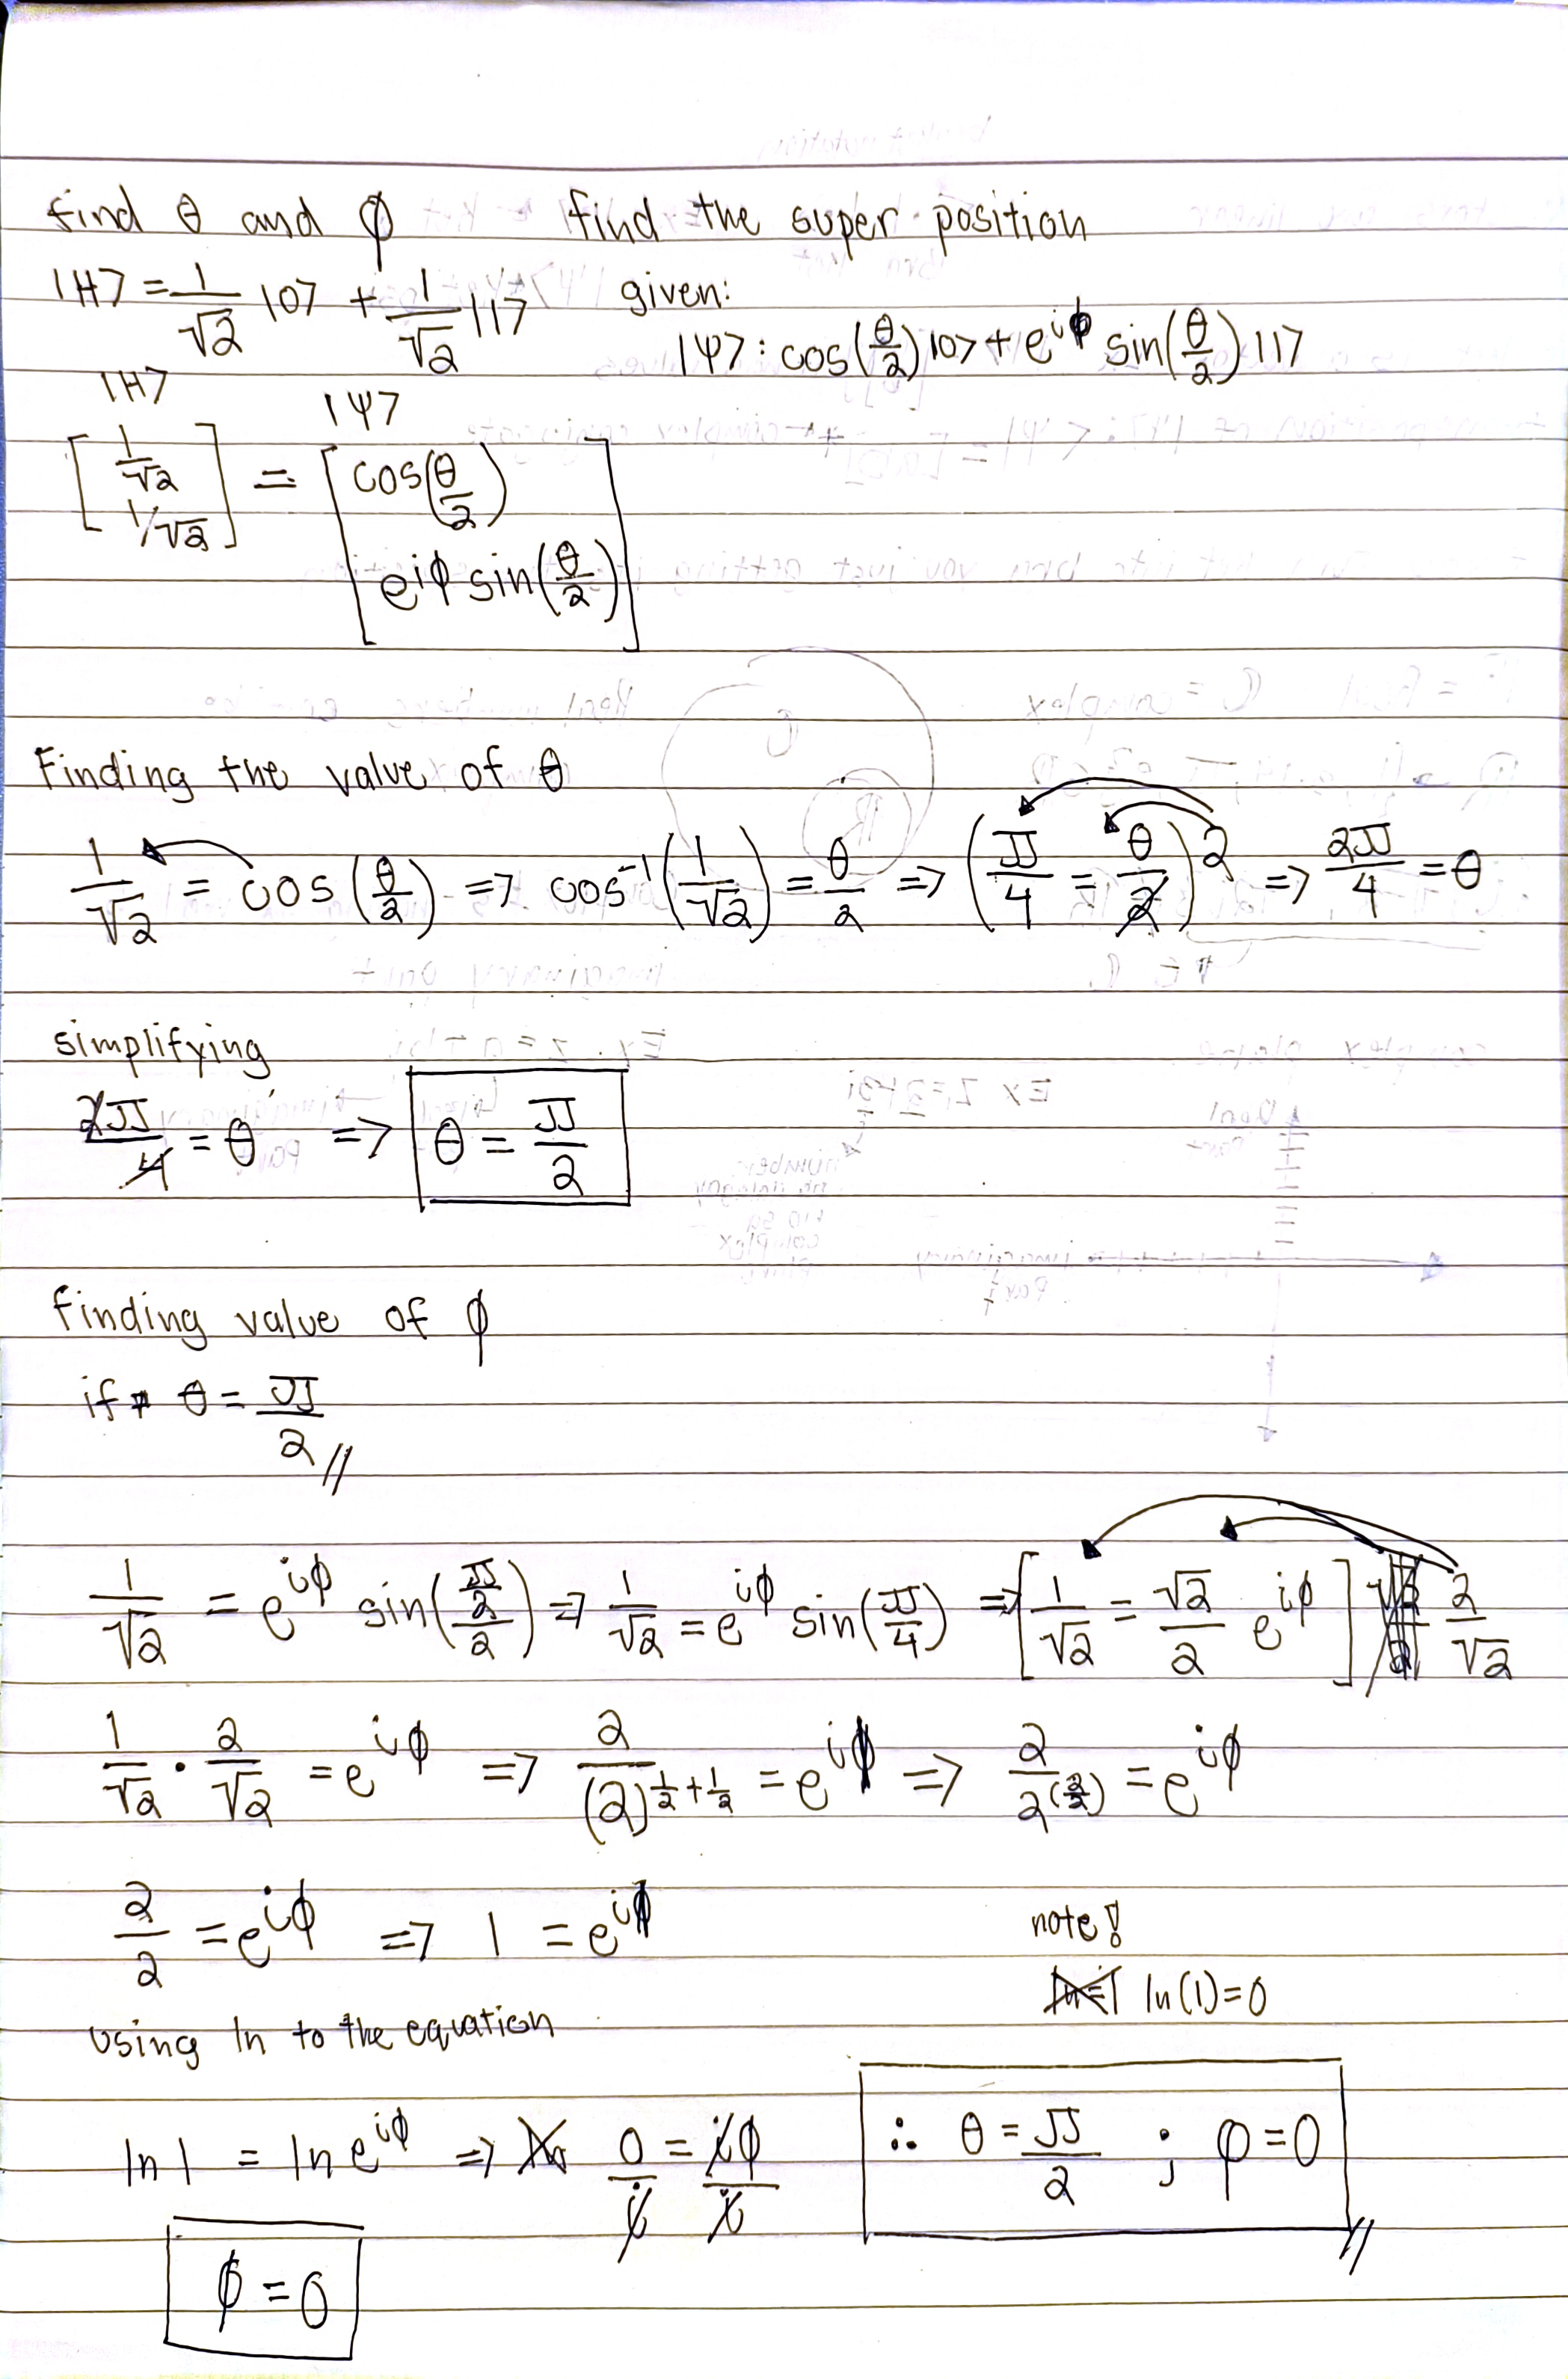 find θ and ϕ find the super position
|H> = 1/√2 |0> + 1/√2 |1> given:
|Ψ> : cos(θ/2)|0> + e^iϕ sin(θ/2)|1>
|H> |Ψ>
[1/√2 1/√2] = [cos(θ/2) e^iϕ sin(θ/2)]
Finding the value of θ
1/√2 = cos(θ/2) => cos^-1(1/√2) = θ/2 => (π/4 = θ/2)2 => 2π/4 = θ
simplifying
2π/4 = θ => θ = π/2
finding value of ϕ
if θ = π/2 //
1/√2 = e^iϕ sin((π/2)/2) => 1/√2 = e^iϕ sin(π/4) => [1/√2 = √2/2 e^iϕ] 2/√2
1/√2 · 2/√2 = e^iϕ => 2/(2)^(1/2+1/2) = e^iϕ => 2/2^(2/2) = e^iϕ
2/2 = e^iϕ => 1 = e^iϕ
note!
ln(1)=0
using ln to the equation
ln 1 = ln e^iϕ => 0/i = iϕ/i
∴ θ = π/2 ; φ=0 //
ϕ = 0